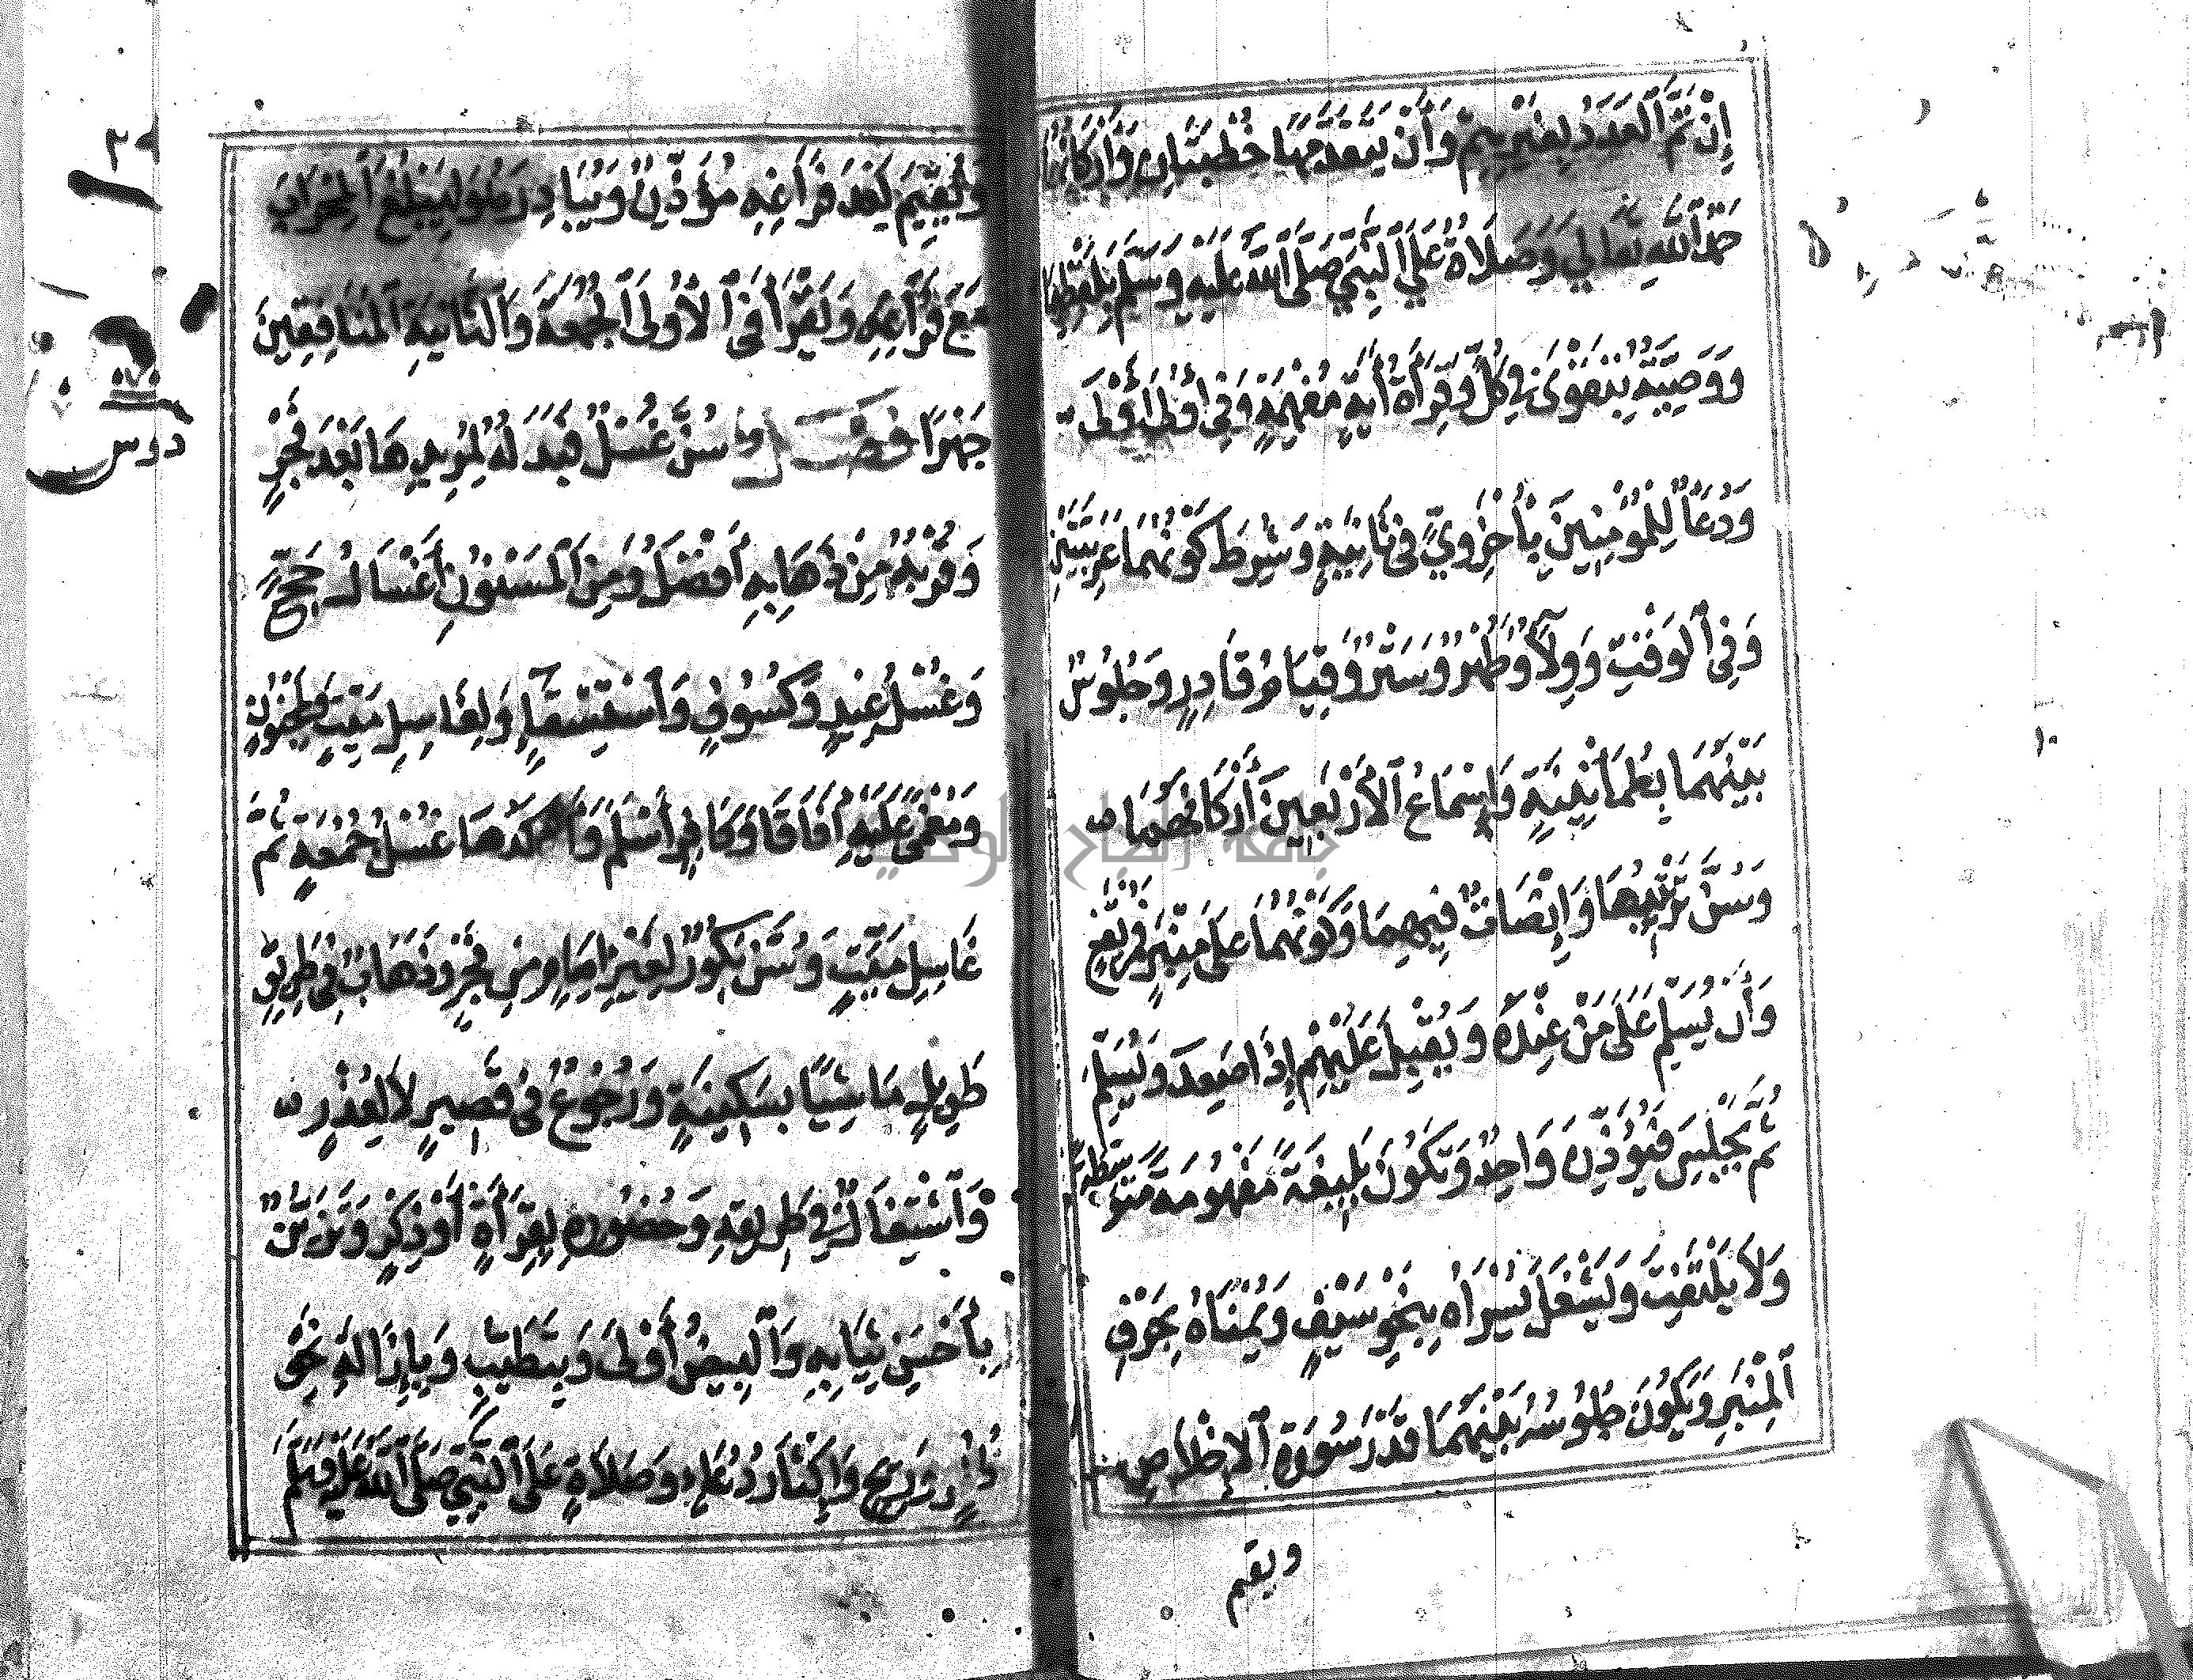 إِنْ تَمَّ الْعَدَدُ بِغَيْرِهِمْ وَأَنْ يَتَقَدَّمَهَا خُطْبَتَانِ وَأَرْكَانُهُمَا
حَمْدُ اللَّهِ تَعَالَى وَصَلَاةٌ عَلَى النَّبِيِّ صَلَّى اللَّهُ عَلَيْهِ وَسَلَّمَ بِلَفْظِهِمَا
وَوَصِيَّةٌ بِتَقْوَى فِي كُلٍّ وَقِرَأَةُ أَيَةٍ مُفْهِمَةٍ وَفِي أُولَى أَوْلَى
وَدُعَاءٌ لِلْمُؤْمِنِينَ بِأُخْرَوِيٍّ فِي ثَانِيَةٍ وَشُرِطَ كَوْنُهُمَا عَرَبِيَّتَيْنِ
وَفِي الْوَقْتِ وَوِلَاءٌ وَطُهْرٌ وَسَتْرٌ وَقِيَامُ قَادِرٍ وَجُلُوسٌ
بَيْنَهُمَا بِطُمَأْنِينَةٍ وَإِسْمَاعُ الْأَرْبَعِينَ أَرْكَانَهُمَا
وَسُنَّ تَرْتِيبُهَا وَإِنْصَاتٌ فِيهِمَا وَكَوْنُهُمَا عَلَى مِنْبَرٍ فَمُرْتَفِعٍ
وَأَنْ يُسَلِّمَ عَلَى مَنْ عِنْدَهُ وَيُقْبِلَ عَلَيْهِمْ إِذَا صَعِدَ وَيُسَلِّمَ
ثُمَّ يَجْلِسَ فَيُؤَذِّنَ وَاحِدٌ وَتَكُونَ بَلِيغَةً مَفْهُومَةً مُتَوَسِّطَةً
وَلَا يَلْتَفِتَ وَيَشْغَلَ يُسْرَاهُ بِنَحْوِ سَيْفٍ وَيُمْنَاهُ بِحَرْفِ
الْمِنْبَرِ وَيَكُونَ جُلُوسُهُ بَيْنَهُمَا قَدْرَ سُورَةِ الْإِخْلَاصِ
ويقيم
وَيُقِيمَ بَعْدَ فَرَاغِهِ مُؤَذِّنٌ وَيُبَادِرَ هُوَ لِيَبْلُغَ الْمِحْرَابَ
مَعَ فَرَاغِهِ وَيَقْرَأَ فِي الْأُولَى الْجُمُعَةَ وَالثَّانِيَةِ الْمُنَافِقِينَ
جَهْرًا فصل سُنَّ غُسْلٌ فَبَدَلُهُ لِمُرِيدِهَا بَعْدَ فَجْرٍ
وَقُرْبُهُ مِنْ ذَهَابِهِ أَفْضَلُ وَمِنَ الْمَسْنُونِ أَغْسَالُ حَجٍّ
وَغُسْلُ عِيدٍ وَكُسُوفٍ وَاسْتِسْقَاءٍ وَلِغَاسِلِ مَيِّتٍ وَلِمَجْنُونٍ
وَمُغْمًى عَلَيْهِ أَفَاقَا وَكَافِرٍ أَسْلَمَ وَآكَدُهَا غُسْلُ جُمُعَةٍ ثُمَّ
غَاسِلِ مَيِّتٍ وَسُنَّ بُكُورٌ لِغَيْرِ إِمَامٍ مِنْ فَجْرٍ وَذَهَابٌ فِي طَرِيقٍ
طَوِيلٍ مَاشِيًا بِسَكِينَةٍ وَرُجُوعٌ فِي قَصِيرٍ لَا لِعُذْرٍ
وَاشْتِغَالٌ فِي طَرِيقِهِ وَحُضُورِهِ بِقِرَأَةٍ أَوْ ذِكْرٍ وَتَزَيُّنٌ
بِأَحْسَنِ ثِيَابِهِ وَالْبِيضُ أَوْلَى وَبِتَطَيُّبٍ وَبِإِزَالَةِ نَحْوِ
ظُفْرٍ وَرِيحٍ وَإِكْثَارُ دُعَاءٍ وَصَلَاةٍ عَلَى النَّبِيِّ صَلَّى اللَّهُ عَلَيْهِ وَسَلَّمَ
دوس
جامعة النجاح الوطنية